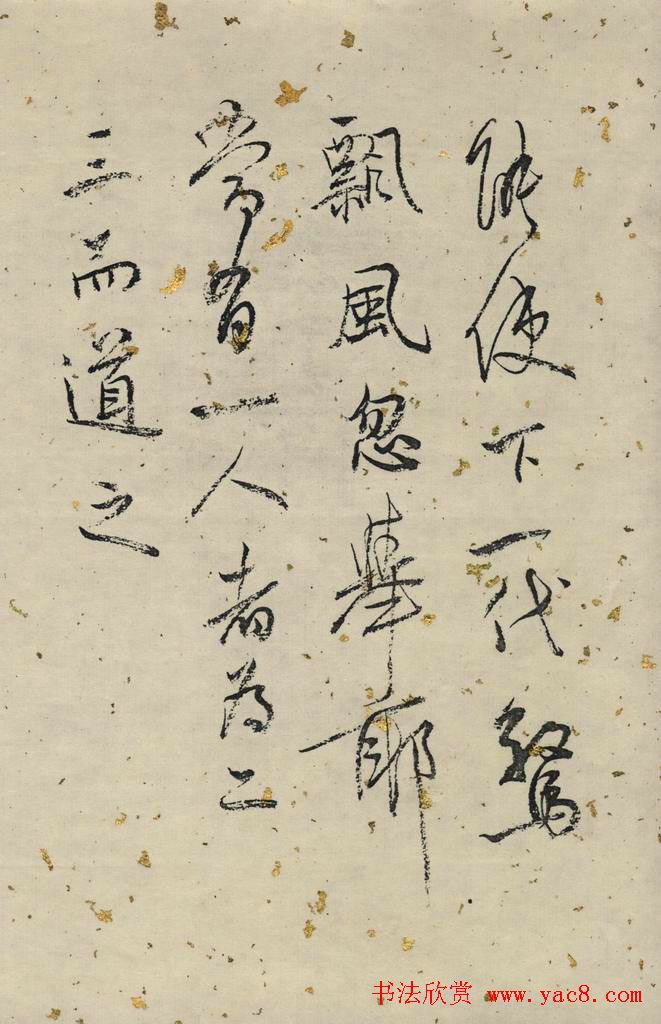 能使下一代驚
飄風忽舉耶
常有一人者為二
三而道之
书法欣赏 www.yac8.com